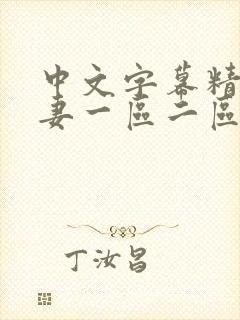 中文字幕精
妻一區二區
丁汝昌